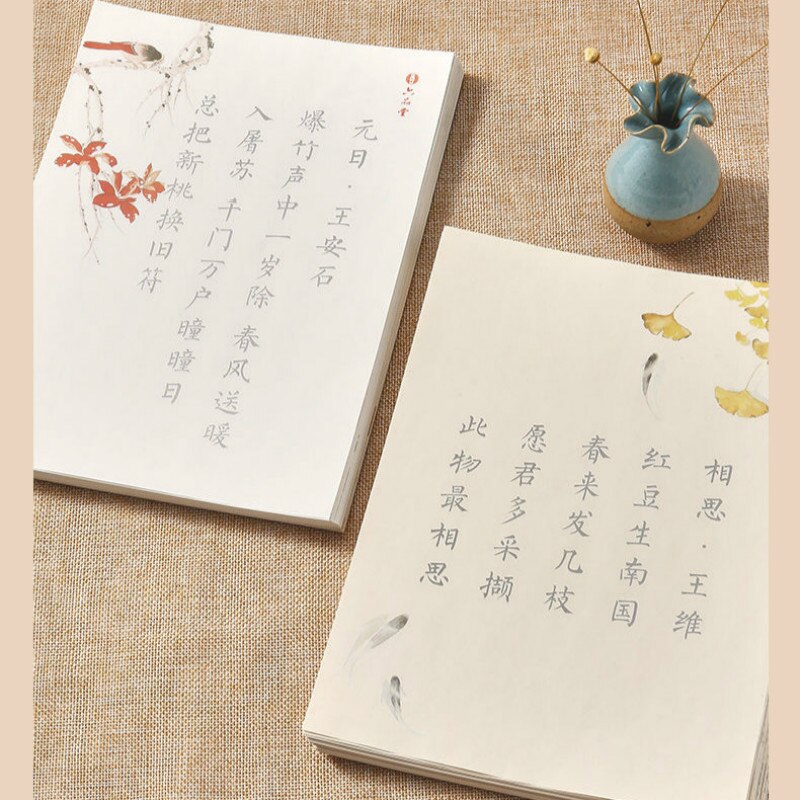 六品堂
元日·王安石
爆竹声中一岁除 春风送暖
入屠苏 千门万户曈曈日
总把新桃换旧符
相思·王维
红豆生南国
春来发几枝
愿君多采撷
此物最相思